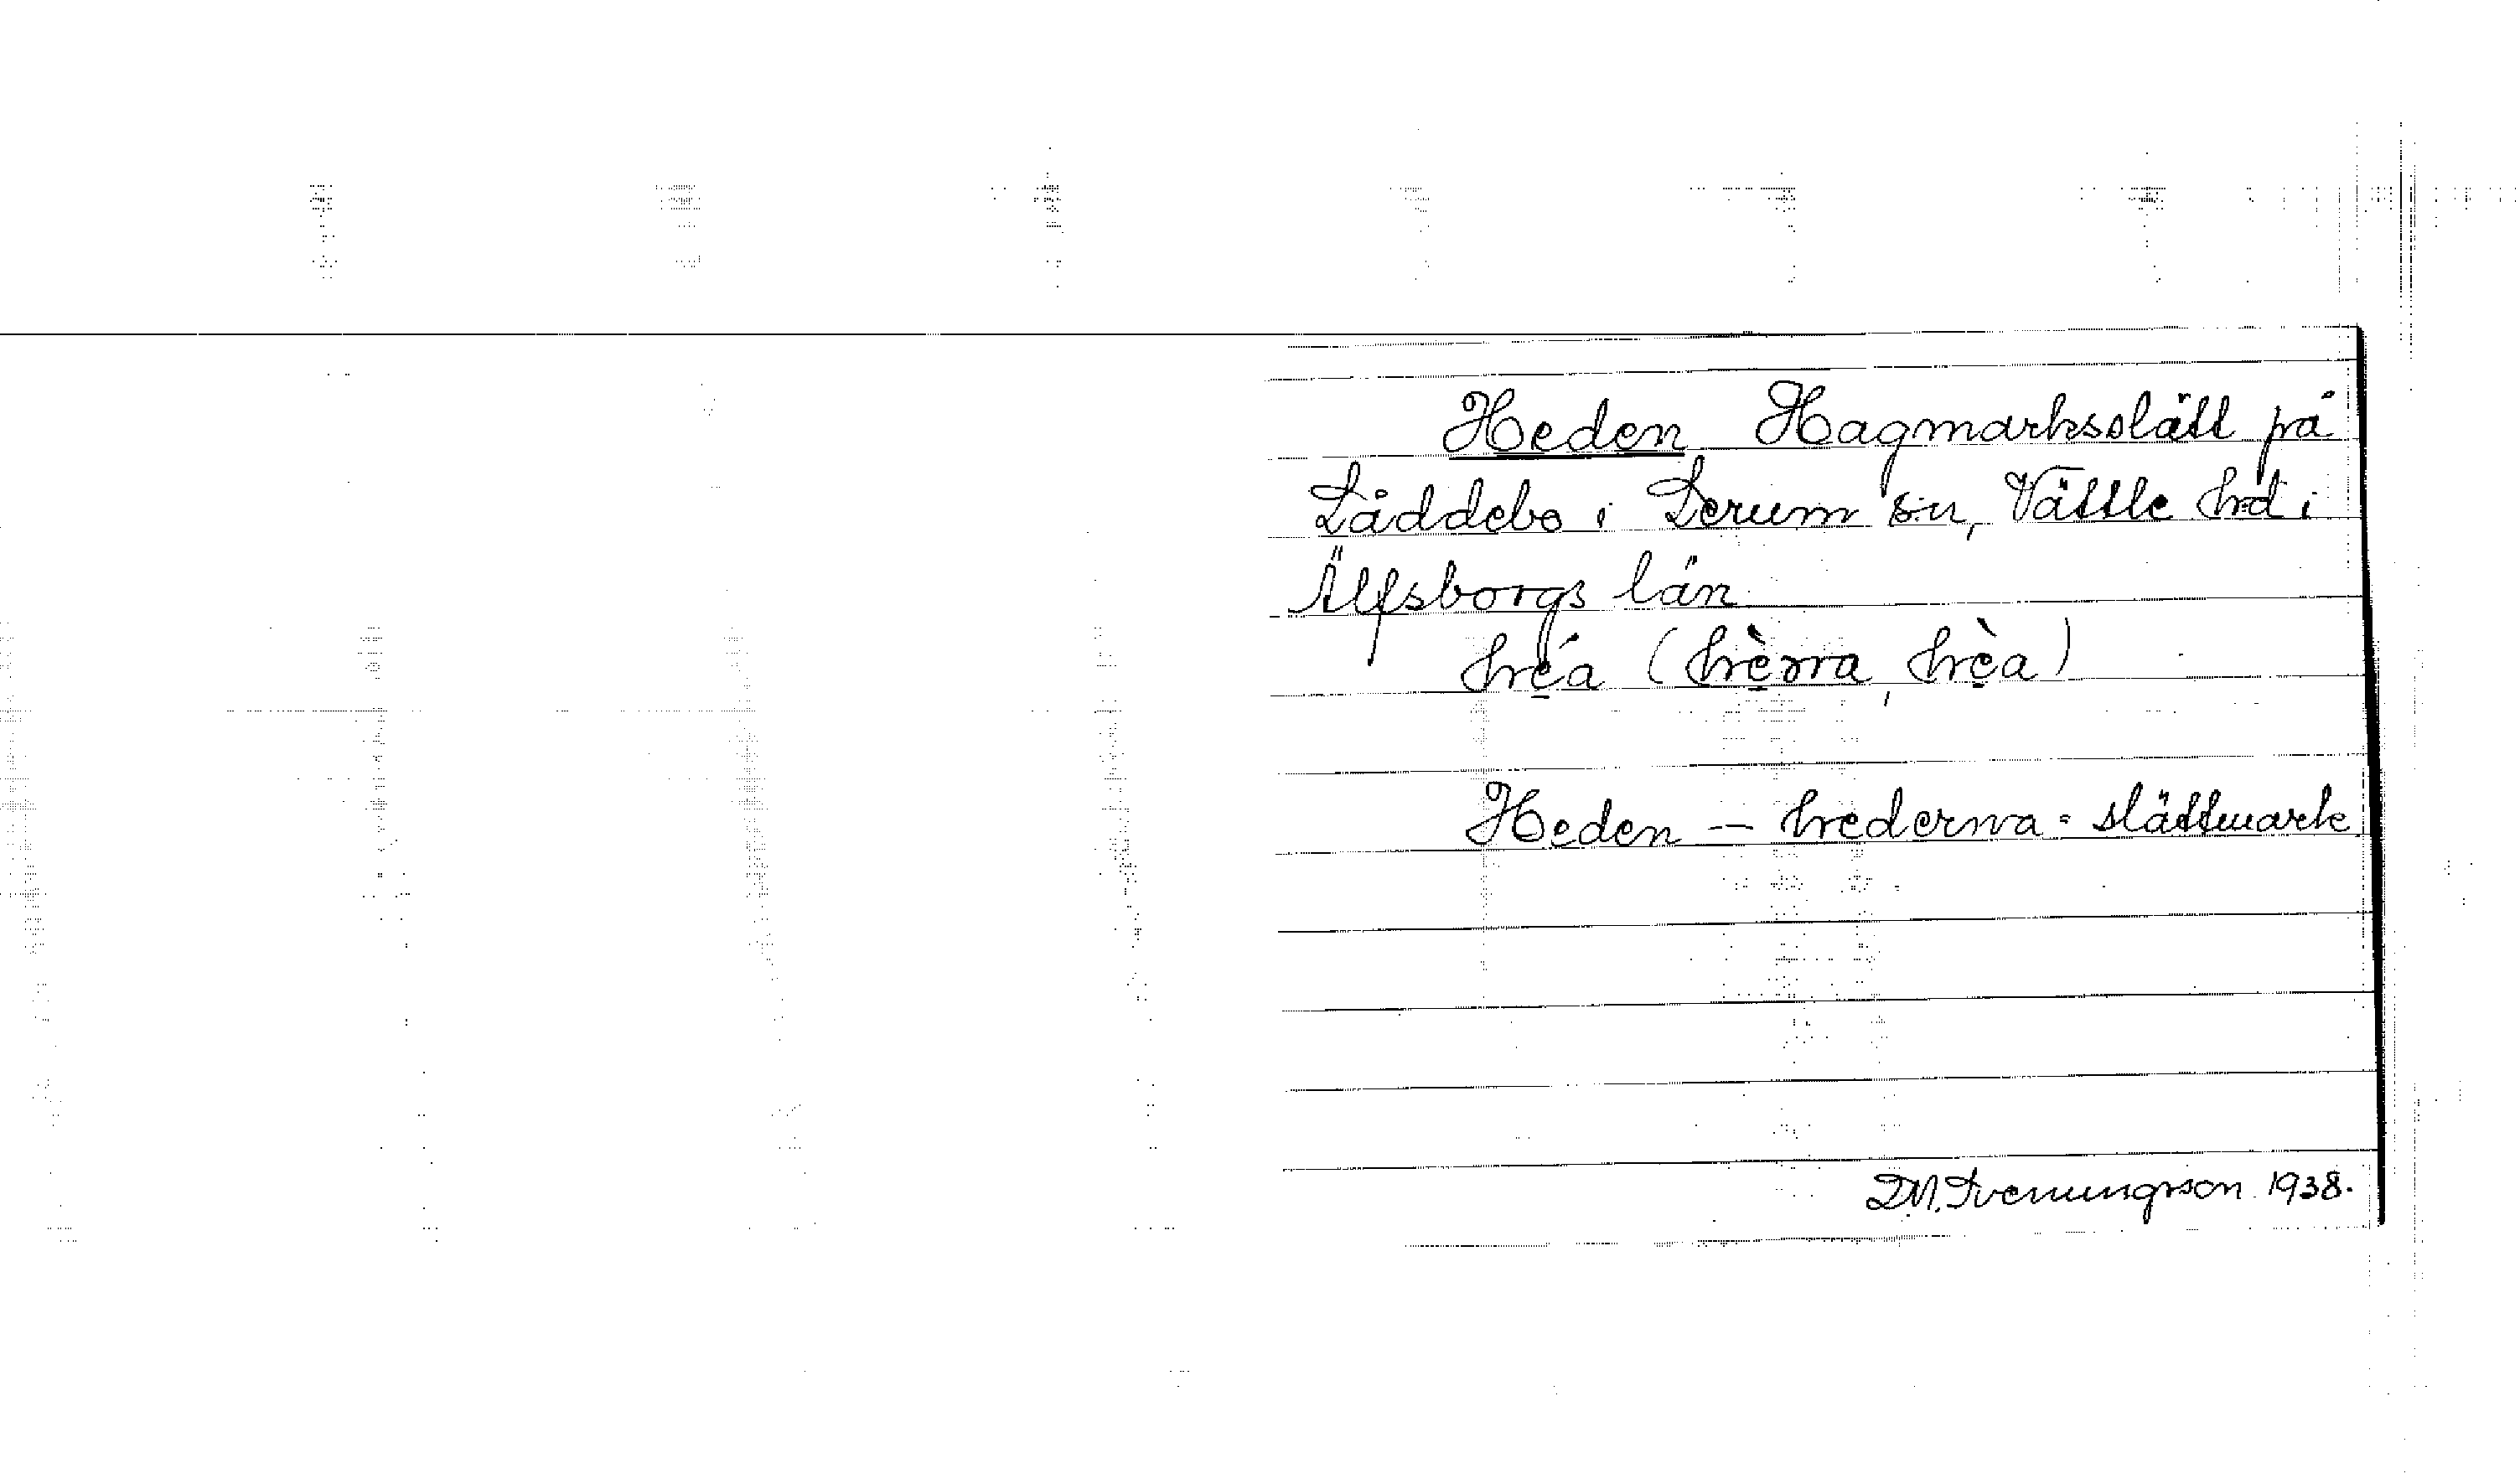 Heden Hagmarksslätt på
Låddebo i Lerum sn, Vättle hd i
Älfsborgs län
hé̱a (hè̱rra, hè̱a)
Heden – hederna = slättmark
D.M. Svenungsson 1938.